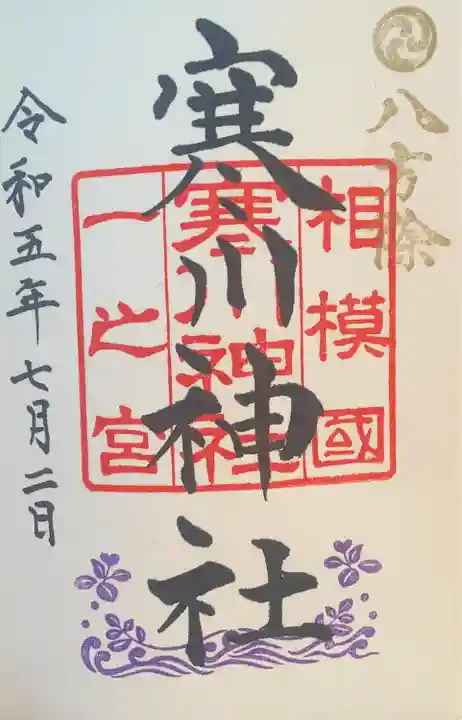 八方除
寒川神社
相模國
寒川神社
一之宮
令和五年七月二日